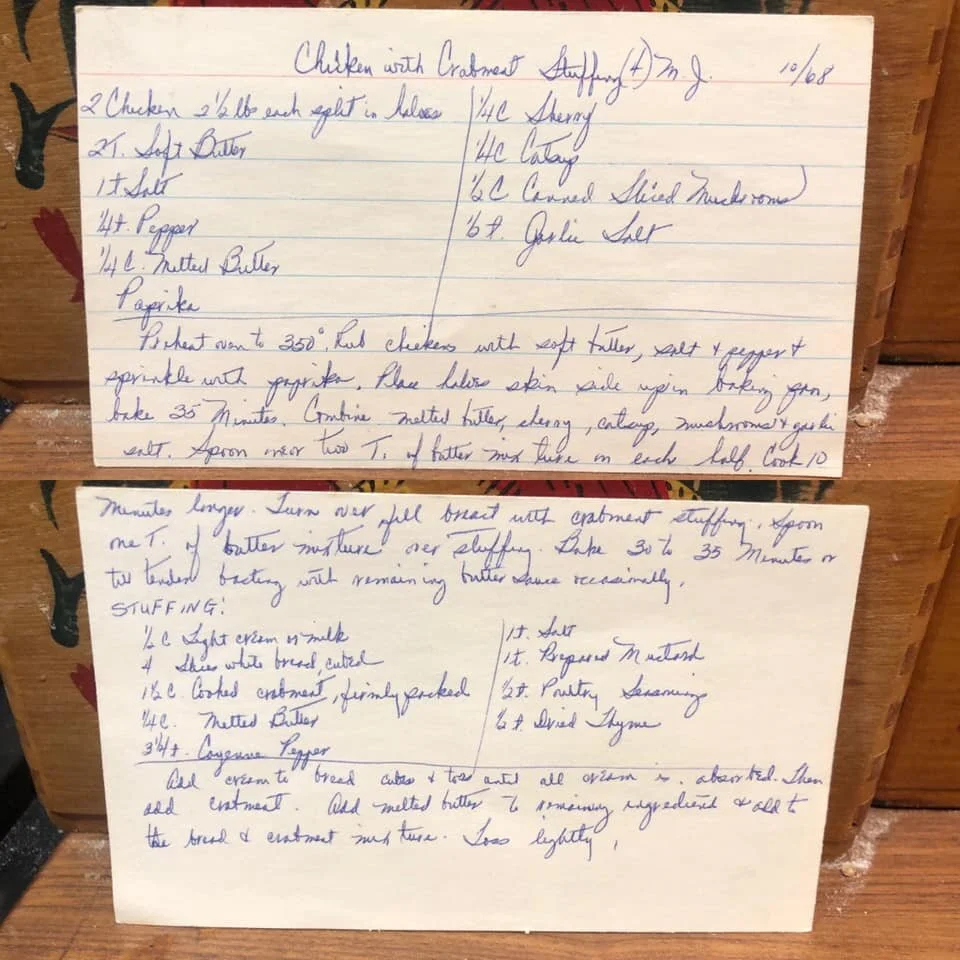 Chicken with Crabmeat Stuffing (4) M. J. 10/68
2 Chicken 2 1/2 lbs each split in halves
2T. Soft Butter
1t Salt
1/4t. Pepper
1/4 C. Melted Butter
Paprika
1/4C Sherry
1/4C Catsup
1/2C Canned Sliced Mushrooms
1/2t. Garlic Salt
Preheat oven to 350°. Rub chickens with soft butter, salt + pepper +
sprinkle with paprika. Place halves skin side up in baking pan,
bake 35 Minutes. Combine melted butter, sherry, catsup, mushrooms + garlic
salt. Spoon over two T. of butter mixture on each half. Cook 10
Minutes longer. Turn over fill breast with crabmeat stuffing. Spoon
one T. of butter mixture over stuffing. Bake 30 to 35 Minutes or
till tender basting with remaining butter sauce occasionally.
STUFFING:
1/2 C Light cream or milk
4 Slices white bread, cubed
1 1/2 C. Cooked crabmeat, firmly packed
1/4C. Melted Butter
3/4t. Cayenne Pepper
1t. Salt
1t. Prepared Mustard
1/2t. Poultry Seasoning
1/2t. Dried Thyme
Add cream to bread cubes + toss until all cream is absorbed. Then
add crabmeat. Add melted butter to remaining ingredients + add to
the bread + crabmeat mixture. Toss lightly.